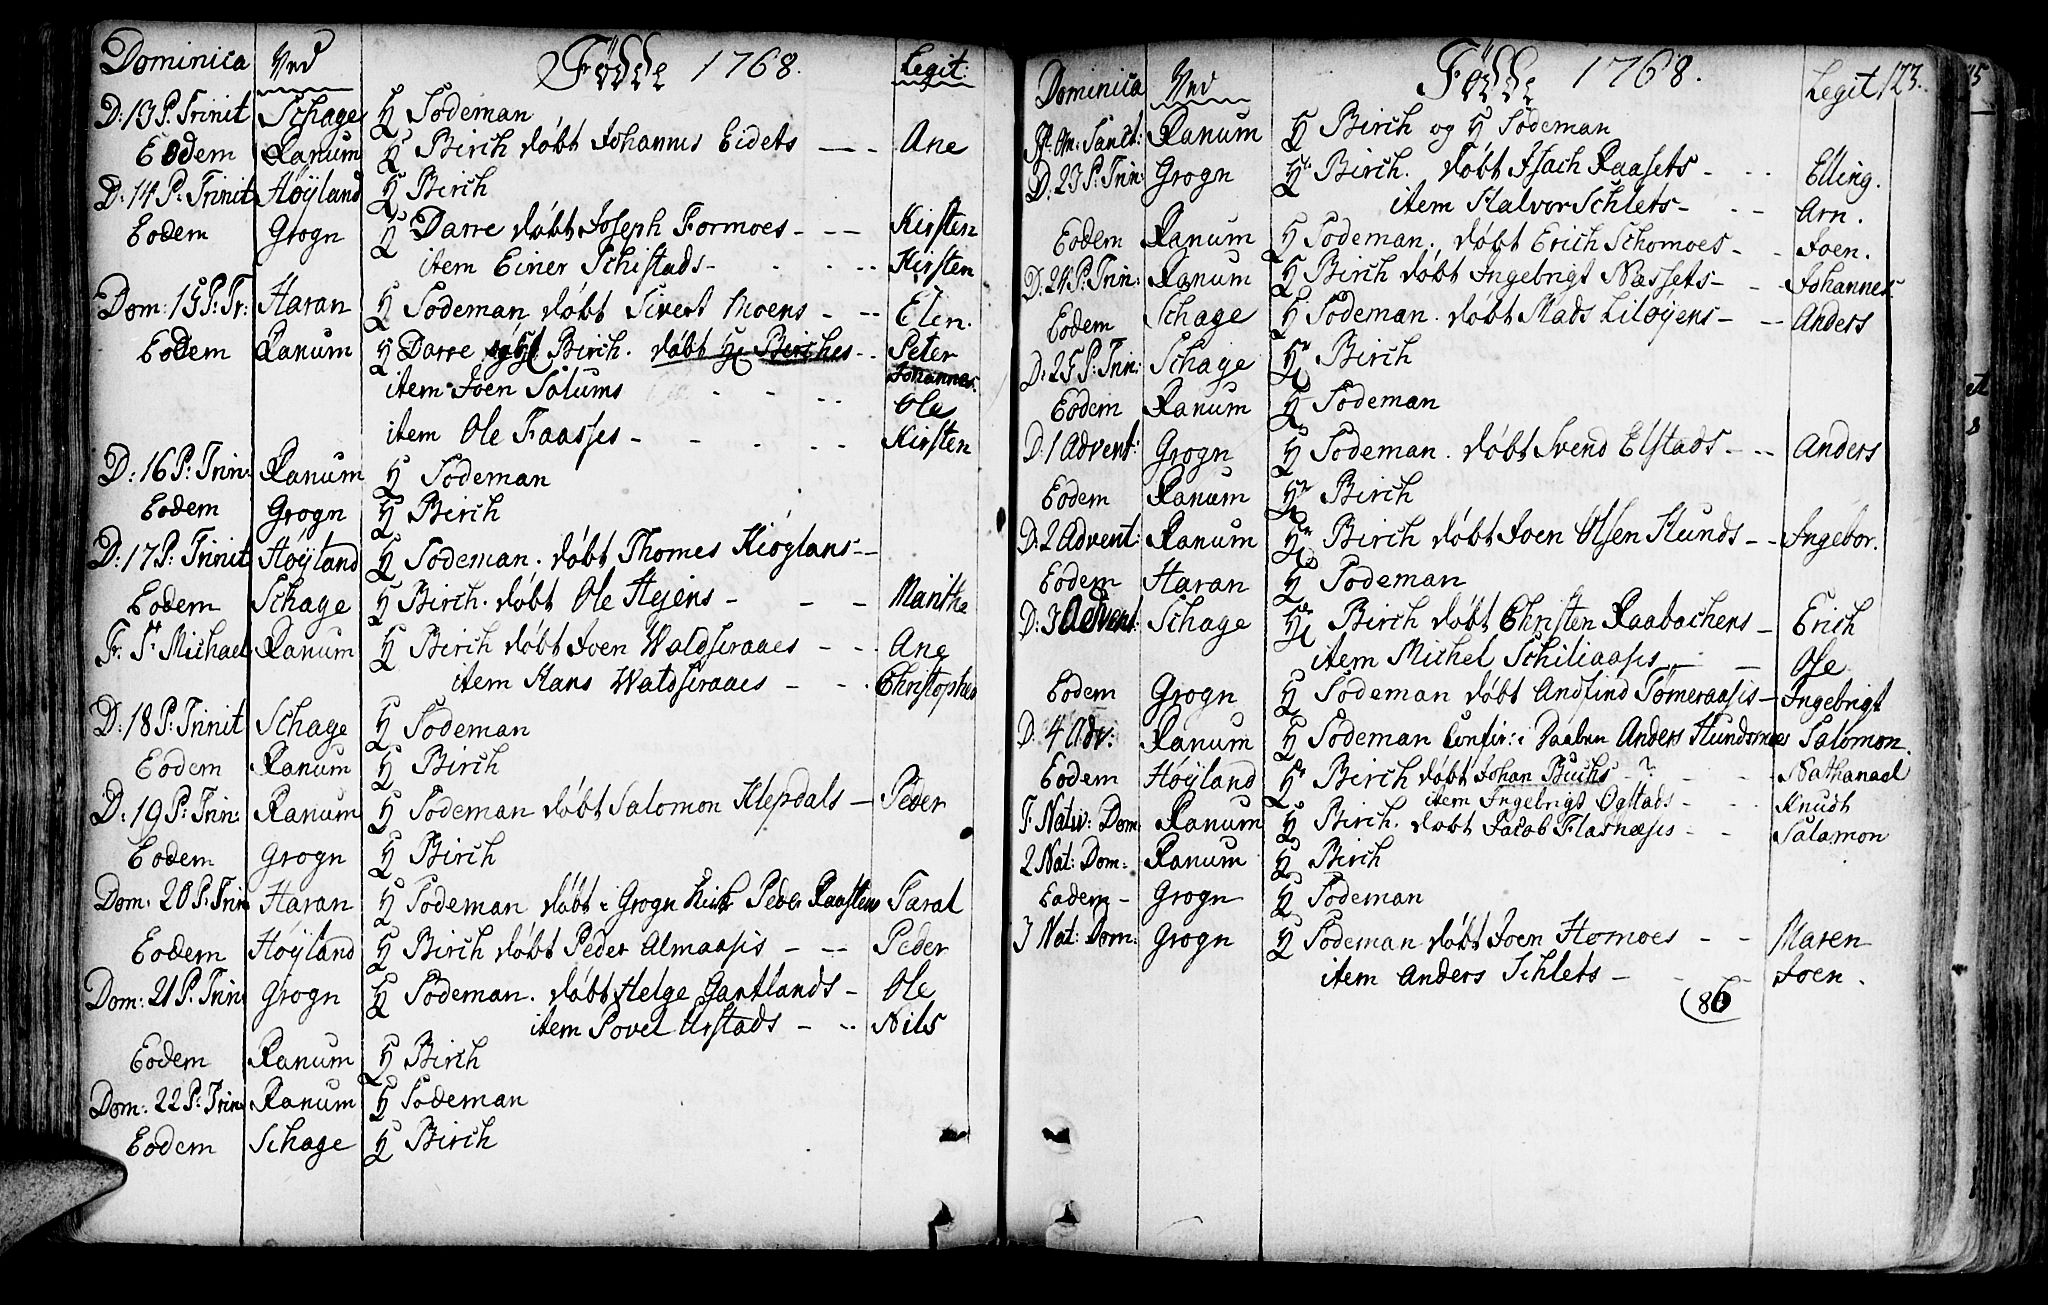 Dominica Ved Födde 1768. Legit:
D: 13 P. Trinit Schage H Sodeman
Eodem Ranum H Birch døbt Johannis Eidets — - Ane
D: 14 P: Trinit Høyland H Birch
Eodem Grogn H Darre døbt Joseph Formoes - - - Kirsten
item Einer Schistads - - - - Kirsten
Dom: 15 P: Tr: Haran H Sodeman døbt Sivert Moens - - - Elen.
Eodem Ranum H Darre og H Birch. døbt Hr Birches - - Peter Johannes
item Joen Solums - - - Ole
item Ole Faasses - - - - - Kirsten
D: 16 P: Trin: Ranum H Sodeman
Eodem Grogn H Birch
D: 17 P: Trinit Høyland H Sodeman. døbt Thomes Kiøglans - -
Eodem Schage H Birch. døbt Ole Hejens - - - Marithe
Fr. St Michael Ranum H Birch døbt Joen Waldseraaes - - - Ane
item Hans Waldseraaes - - - Christopher
D: 18 P: Trinit Schage H Sodeman
Eodem Ranum H Birch
D: 19 P: Trin: Ranum H Sodeman døbt Salomon Klepdals - Peder
Eodem Grogn H Birch
Dom: 20 P: Trin Haran H Sodeman døbt i Grogn Kirk Peder Raasten Saral
Eodem Høyland H Birch døbt Peder Almaasis - - - Peder
Dom: 21 P: Trin: Grogn H Sodeman. døbt Helge Gartlands - Ole
item Povel Urstads - - - Nils
Eodem Ranum H Birch
Dom: 22 P: Trin: Ranum H Sodeman
Eodem Schage H Birch
Dominica Ved Födde 1768. Legit 123.
Om: Sanct: Ranum H Birch og H Sodeman
D: 23 P: Trin: Grogn Hr Birch. døbt Isach Raasets - - - Elling.
item Halvor Schlets - - - Arn.
Eodem Ranum H Sodeman. døbt Erich Schomoes - - Joen.
D: 24 P: Trin: Ranum H Birch døbt Ingebrigt Nassets - - - Johannes
Eodem Schage H Sodeman. døbt Mads Liløyens - - - Anders
D: 25 P: Trin: Schage Hr Birch
Eodem Ranum H Sodeman
D: 1 Advent: Grogn H Sodeman. døbt Svend Elstads - - - Anders
Eodem Ranum Hr Birch
D: 2 Advent: Ranum Hr Birch døbt Joen Olsen Hunds - - Ingebor.
Eodem Haran H Sodeman
D: 3 Advent: Schage Hr Birch døbt Christen Raabachens - Erich
item Michel Schiliaasis - - - Ole
Eodem Grogn H Sodeman døbt Andfind Tømeraasis - Ingebrigt
D: 4 Adv: Ranum H Sodeman Confir: i Daaben Anders Hundsmoes Salomon.
Eodem Høyland Hr Birch døbt Johan Buchs - ? - - Nathanael
item Ingebrigt Øgstads - - - Knudt
F. Nativ: Dom: Ranum H Birch. døbt Jacob Flasnæsis - - Salamon
2 Nat: Dom: Ranum H Birch
Eodem - Grogn H Sodeman
3 Nat: Dom: Grogn H Sodeman døbt Joen Homoes - - Maren
item Anders Schlets - - - Joen.
(86